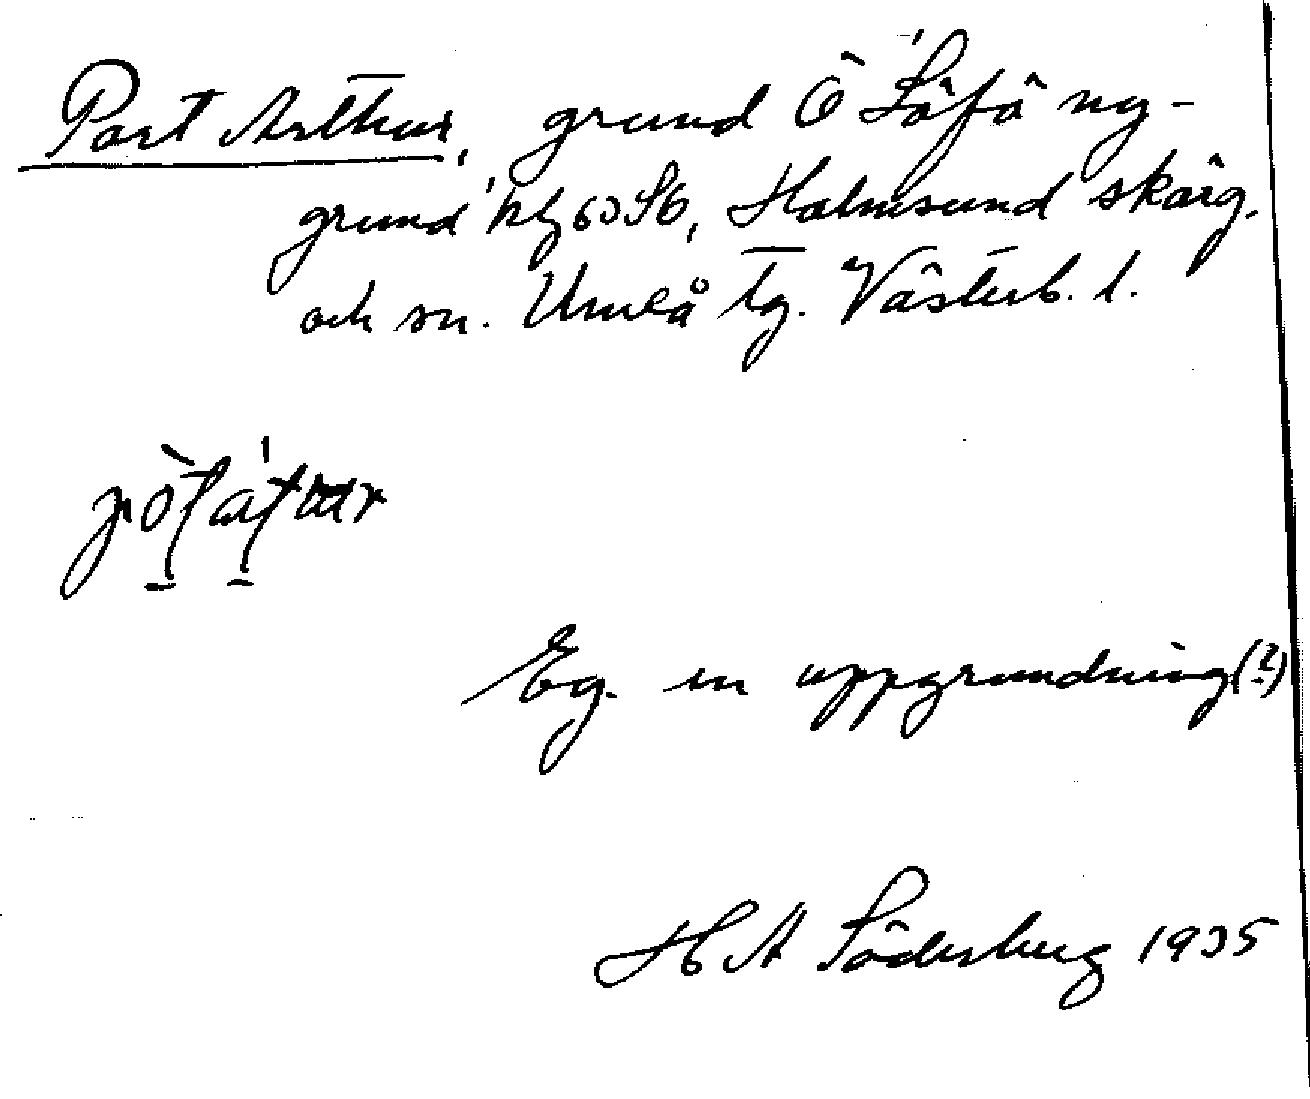 Port Arthur, grund Ö 'Löfö ny-
grund' bl 60 S6, Holmsund skärg.
och sn. Umeå tg. Västerb. l.
Eg. en uppgrundning(?)
H A Söderberg 1935